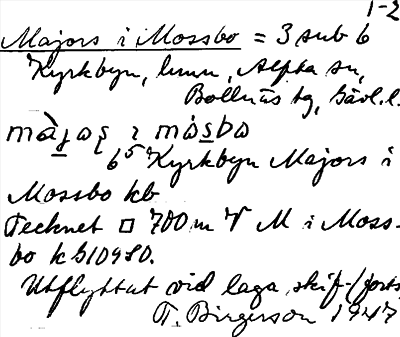 1-2
Majors i Mossbo = 3 sub 6
Kyrkbyn, hmn, Alfta sn,
Bollnäs tg, Gävl. l.
måjos i måsbo
6⁵ Kyrkbyn Majors i
Mossbo kb
Tecknet □ 700 m V M i Moss-
bo kb 10980.
Utflyttat vid laga skif- (forts
T. Birgerson 1947